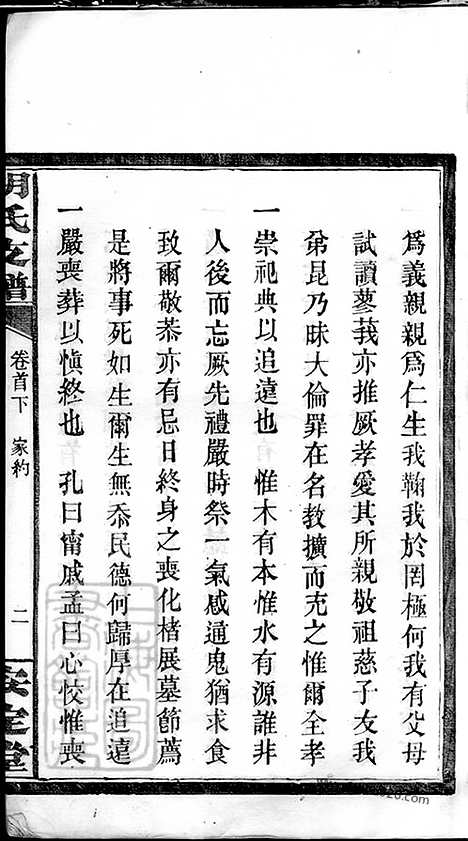 為義親親為仁生我鞠我於罔極何我有父母
試讀蓼莪亦推厥孝愛其所親敬祖慈子友我
弟昆乃昧大倫罪在名教擴而充之惟爾全孝
一崇祀典以追遠也 惟木有本惟水有源誰非
人後而忘厥先禮嚴時祭一氣感通鬼猶求食
致爾敬恭亦有忌日終身之喪化楮展墓節薦
是將事死如生爾生無忝民德何歸厚在追遠
一嚴喪葬以愼終也 孔曰甯戚孟曰心恔惟喪
胡氏支譜
卷首下 家約
二
安定堂